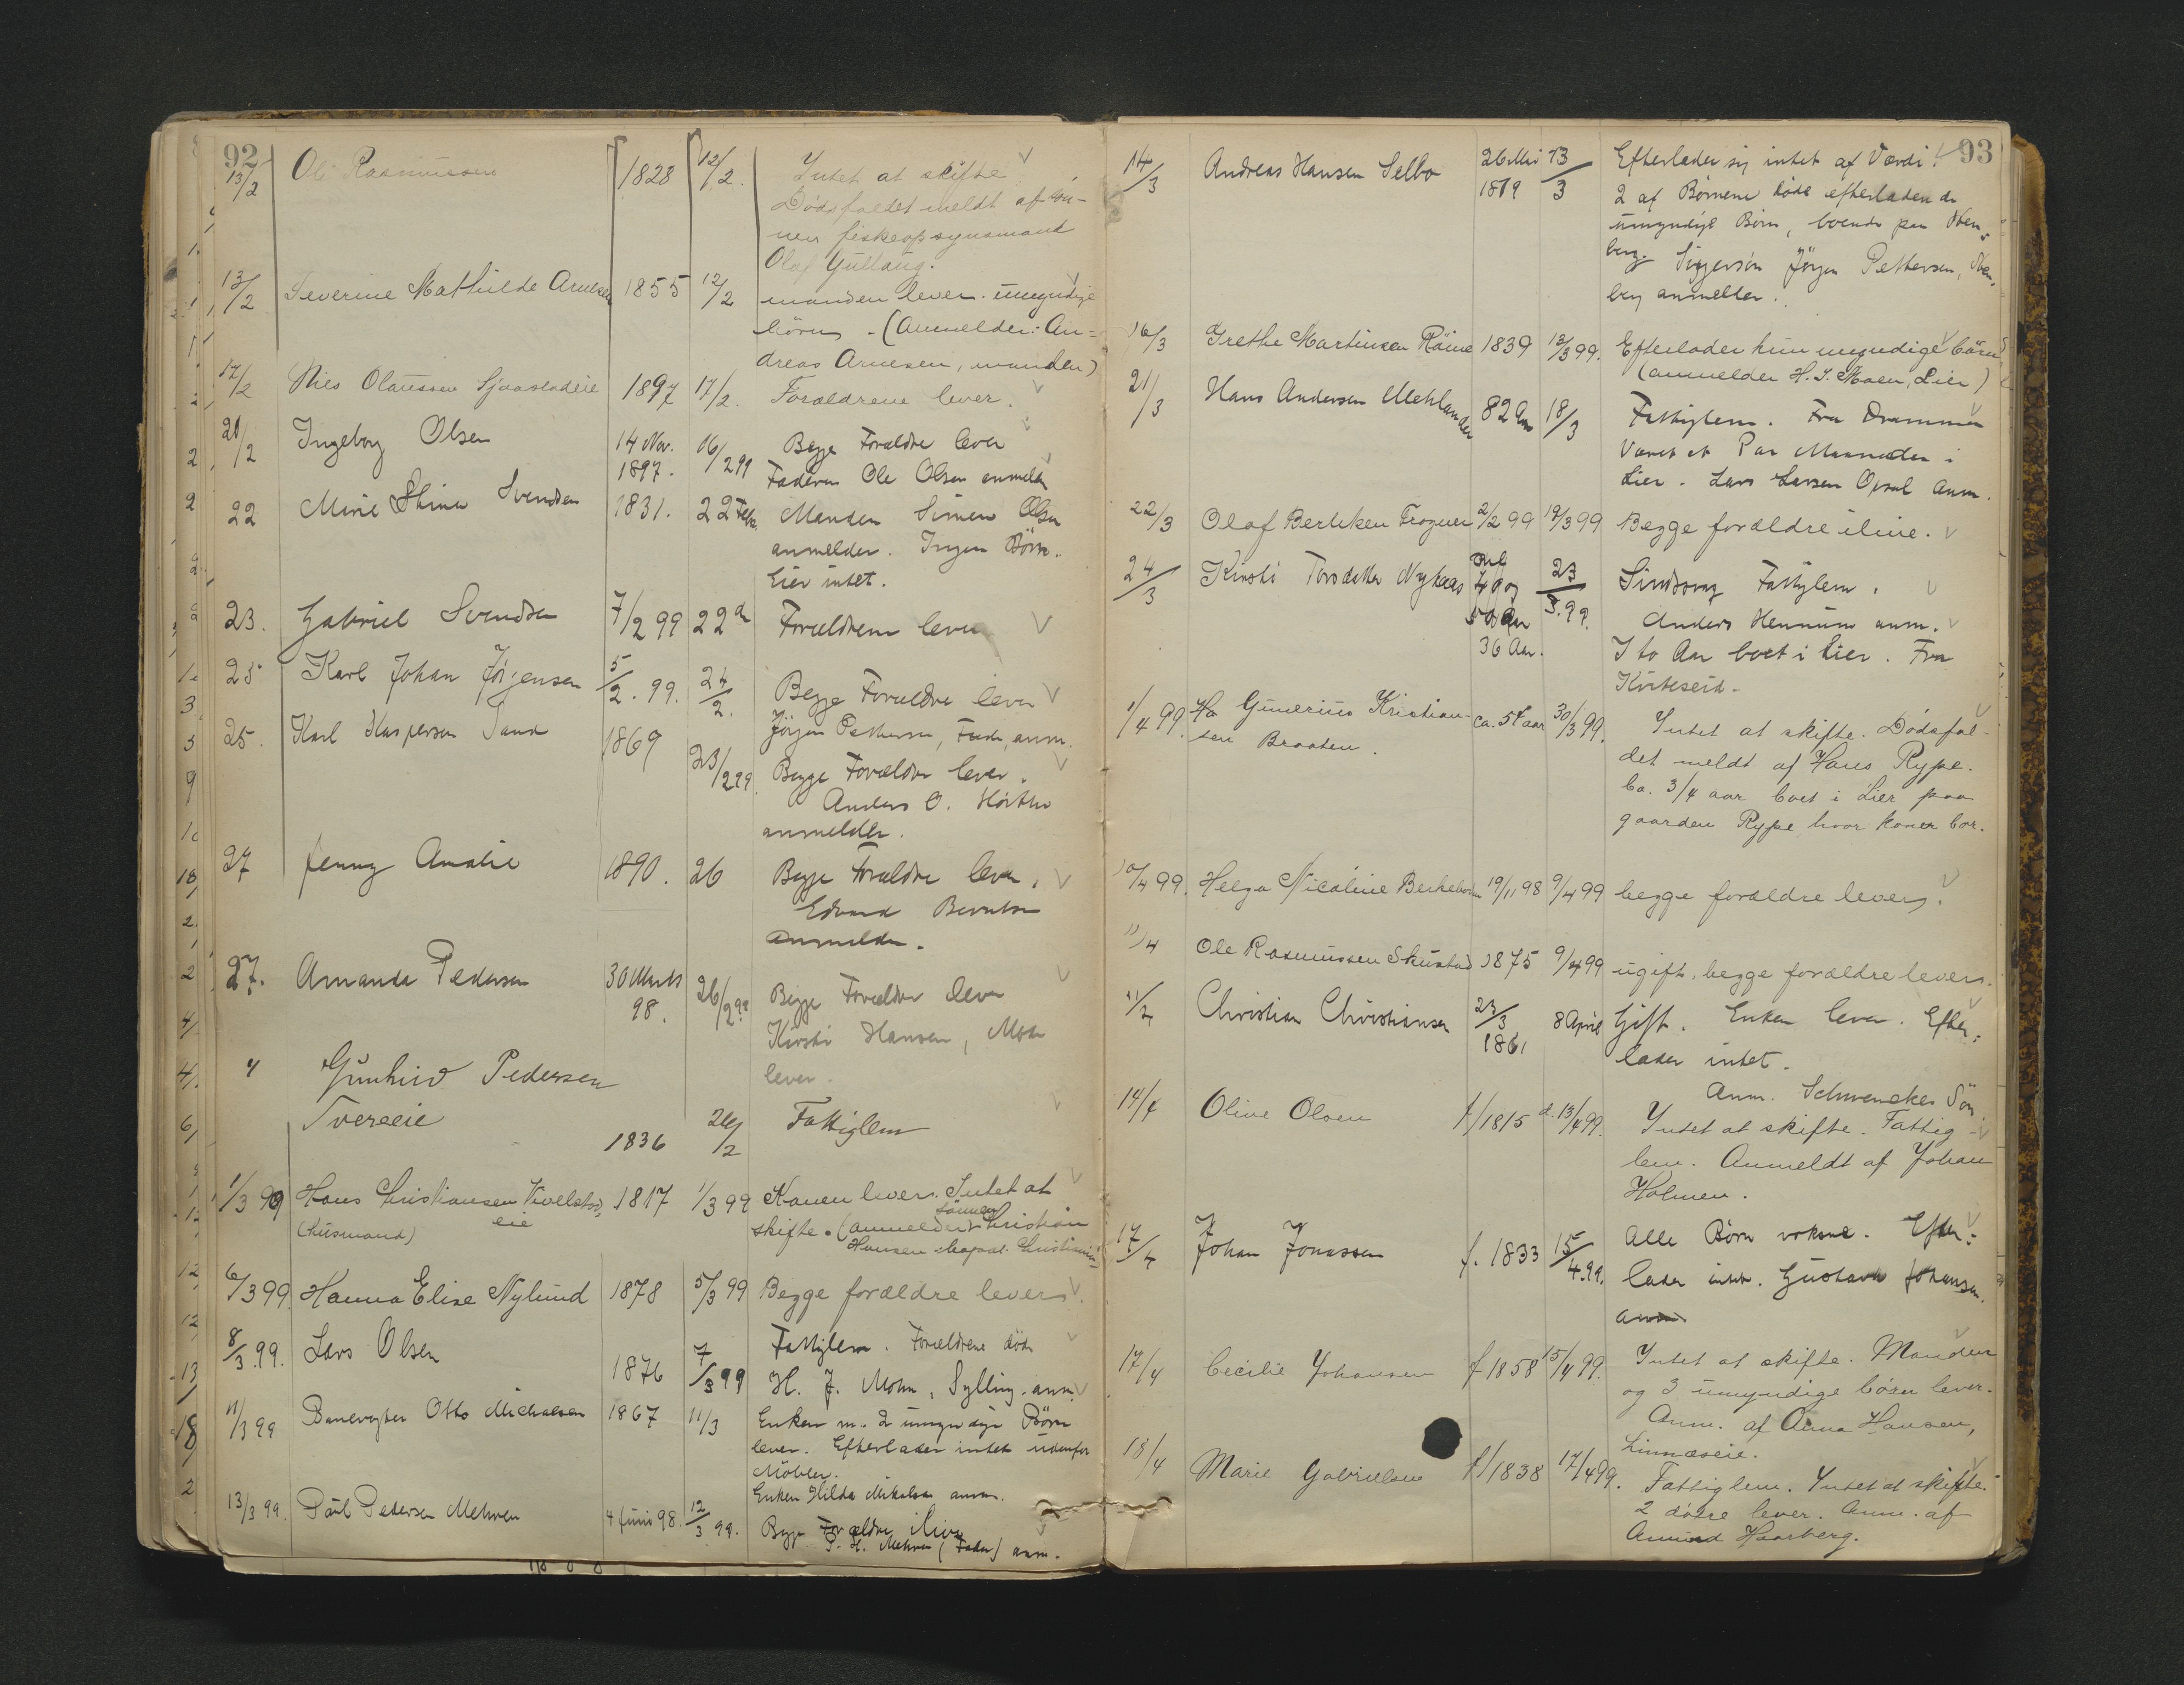 92
13/2 Ole Rasmussen 1828 12/2. Intet at skifte
Dødsfaldet meldt af
fiskeopsynsmand
Olaf Gullaug.
13/2 Severine Mathilde Arnesen 1855 12/2 manden lever. umyndige
børn - (Anmelder: An-
dreas Arnesen, manden)
17/2 Nils Olaussen 1897 17/2. Forældrene lever.
21/2 Ingeborg Olsen 14 Nov. 1897. 16/2 99 Begge Forældre lever
Faderen Ole Olsen anmelder
22 Svendsen 1831. 22 Febr. Manden Simen Olsen
anmelder. Ingen Børn.
Eier intet.
23. Gabriel Svendsen 7/2 99 22de Forældrene lever
25 Karl Johan Jørgensen 5/2. 99. 24/2. Begge Forældre lever
Jörgen Pettersen, Fader, anm.
25. Karl Kaspersen Sand 1869 23/2 99. Begge Forældre lever.
Anders O.
anmelder.
27 Jenny Amalie 1890. 26 Begge Forældre lever.
Edvard Berntsen
anmelder.
27. Amanda Pedersen 30 Marts 98. 26/2 98 Begge Forældre lever
Kirsti Hansen, Moder
lever.
" Gunhild Pedersen
Tvereeie 1836 26/2 Fattiglem
1/3 99 Hans Christiansen 1817 1/3 99 Konen lever. Intet at
eie
(husmand) skifte. (anmelder sønnen Christian
Hansen
6/3 99. Hanna Elise Nylund 1878 5/3 99 Begge forældre lever.
8/3. 99. Lars Olsen 1876 7/3 99 Fattiglem. Forældrene døde
H. J. Moen, Sylling. anm.
11/3 99 Banevogter Otto Michaelsen 1867 11/3 Enken m. 2 umyndige Børn
lever. Efterlader intet udenfor
Møbler.
Enken Hilda Mikalsen anm.
13/3 99. Paul Pedersen Mehren 4 Juni 98. 12/3 99. Begge Forældre ilive
P. H. Mehren (Fader) anm.
93
14/3 Andreas Hansen Selbo 26 Mai 1819 13/3 Efterlader sig intet af Værdi.
2 af Børnene døde efterladende
umyndige Børn, boende paa Sten-
berg. Svigersøn Jörgen Pettersen, Sten-
berg anmelder.
16/3 Grethe Martinsen 1839 13/3 99. Efterlader kun umyndige børn
(anmelder H. J. Moen, Lier)
21/3 Hans Andersen 82 Aar 18/3 Fattiglem. Fra Drammen
Været et Par Maaneder i
Lier. Lars Larsen Opsal anm.
22/3 Olaf Bertiken Frogner 2/2 99 19/3 99 Begge forældre ilive.
24/3 Kirsti Torsdatter 40 og 50 Aar 23/3. 99. Sindssvag Fattiglem.
36 Aar. Anders Hennum anm.
I to Aar boet i Lier. Fra
Kviteseid.
1/4 99. Gunerius Kristian- ca. 54 aar 30/3 99. Intet at skifte. Dødsfal-
sen Braaten. det meldt af Hans Rype.
Ca. 3/4 aar boet i Lier paa
gaarden Rype, hvor konen bor.
10/4 99. Helga Nicoline 19/11 98 9/4 99 begge forældre lever.
11/4 Ole Rasmussen Skustad 1875 9/4 99 ugift, begge forældre lever.
11/4 Christian Christiansen 23/3 1861 8 April Gift. Enken lever. Efter-
lader intet.
Anm. Schwenckes Søn.
14/4 Olive Olsen f/1815 d. 13/4 99. Intet at skifte. Fattig-
lem. Anmeldt af Johan
Holmen.
17/4 Johan Jonassen f. 1833 15/4. 99. Alle Børn voksne. Efter-
lader intet. Gustava Johansen.
anm.
17/4 Cecilie Johansen f 1858 15/4 99. Intet at skifte. Manden
og 3 umyndige børn lever.
Anm. af Anna Hansen,
18/4 Marie Gabrielsen f/1838 17/4 99. Fattiglem. Intet at skifte.
2 døtre lever. Anm. af
Amund Haarberg.